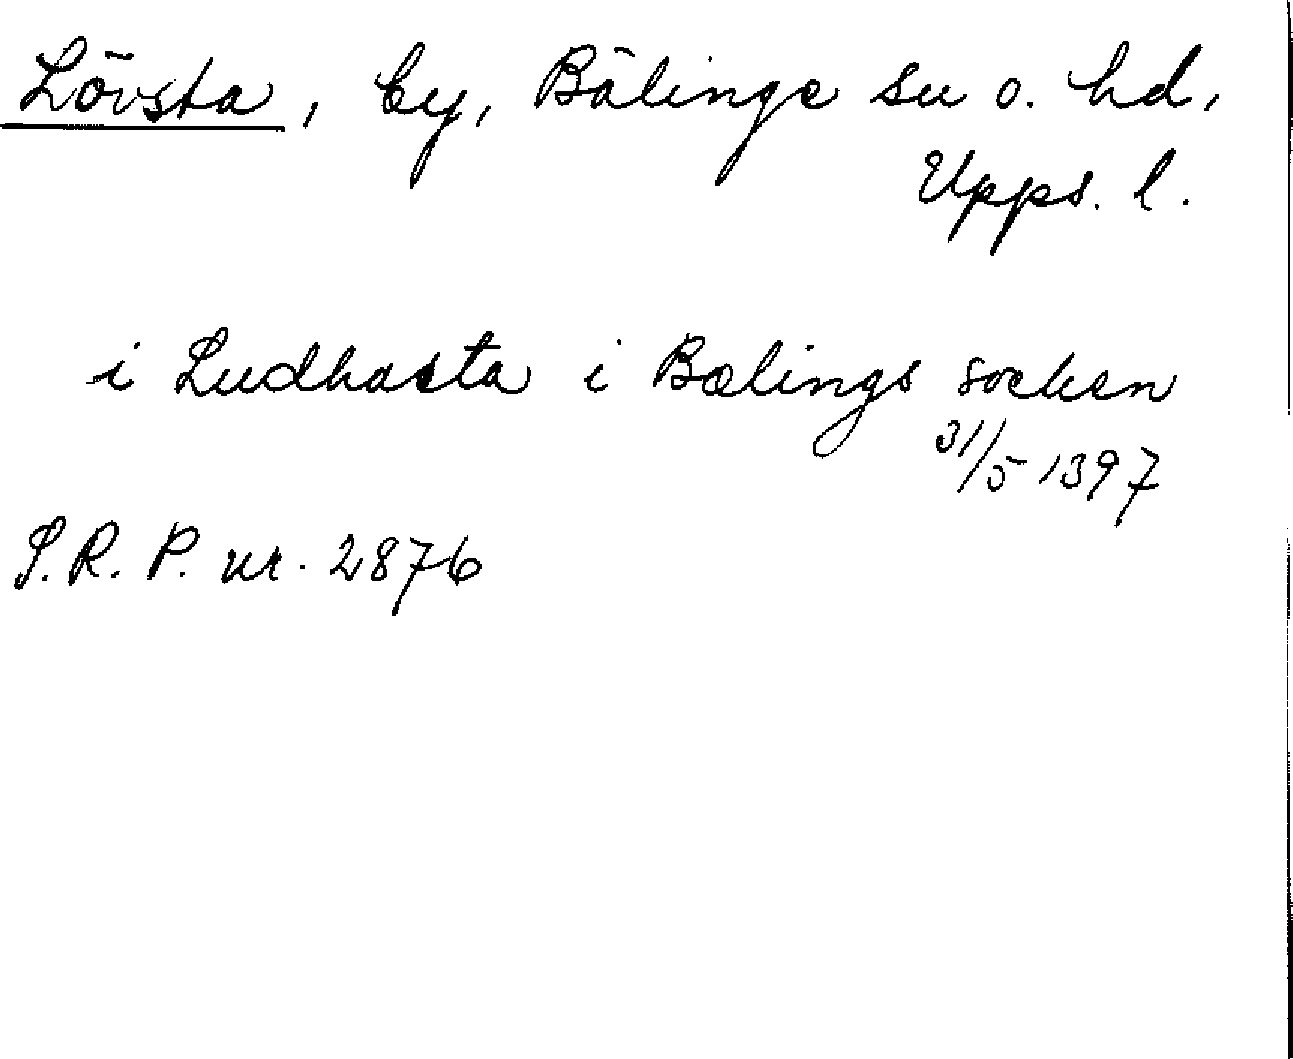 Lövsta, by, Bälinge sn o. hd,
Upps. l.
i Ludhasta i Bælings socken
31/5 1397
S.R.P. nr. 2876